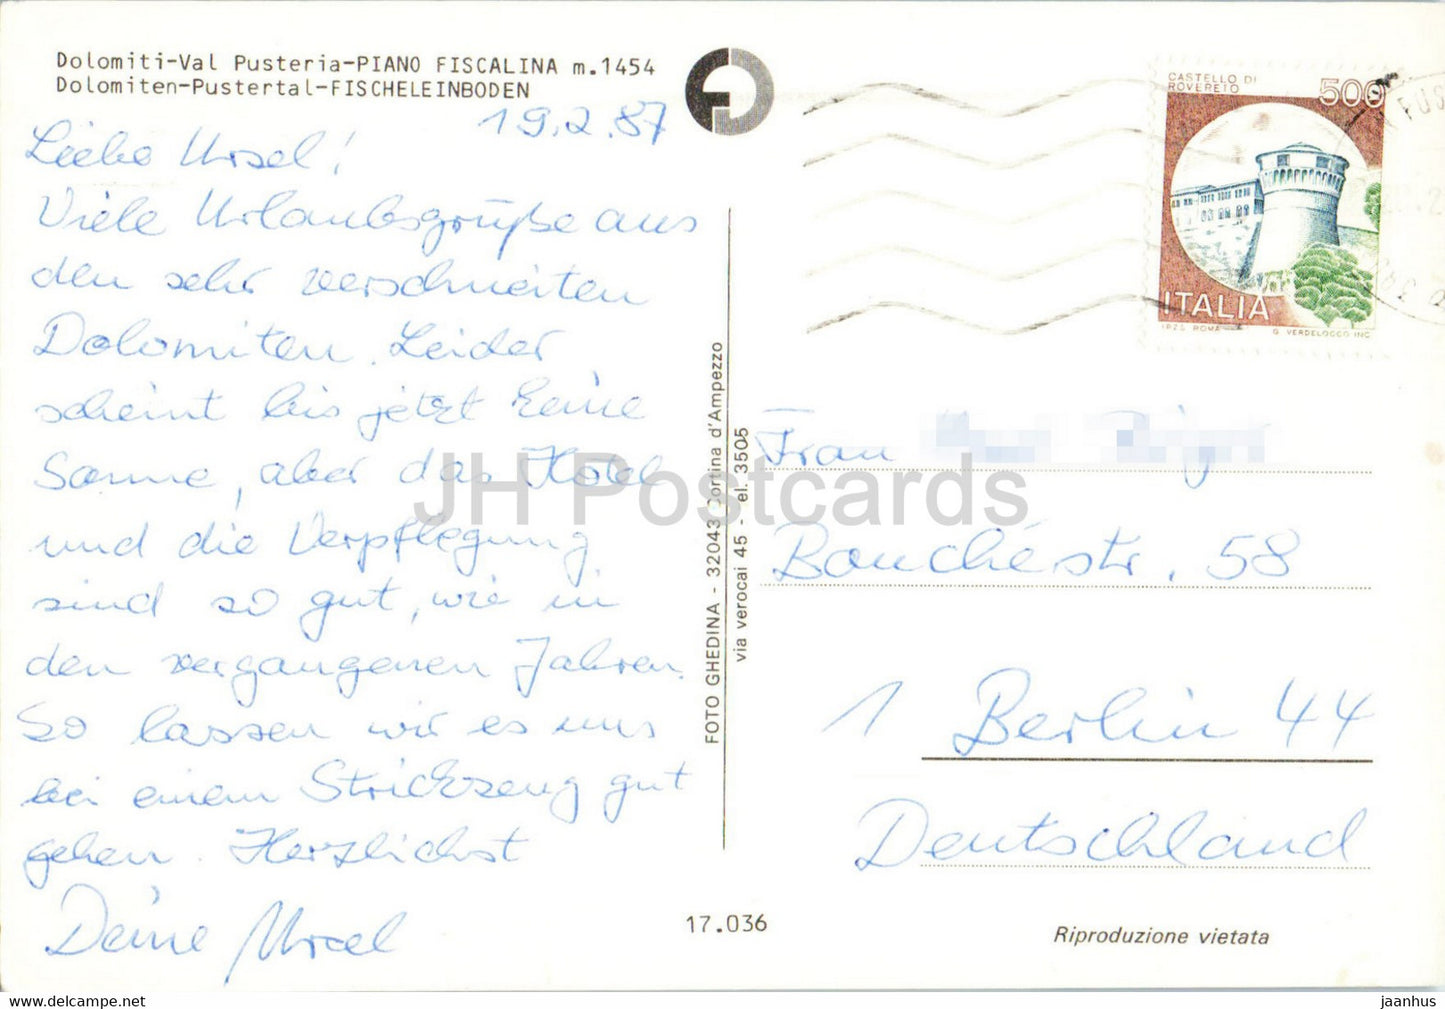 Dolomiti-Val Pusteria-PIANO FISCALINA m.1454
Dolomiten-Pustertal-FISCHELEINBODEN
19.2.87
Liebe Ursel!
Viele Urlaubsgrüße aus
den sehr verschneiten
Dolomiten. Leider
scheint bis jetzt keine
Sonne, aber das Hotel
und die Verpflegung
sind so gut, wie in
den vergangenen Jahren.
So lassen wir es uns
bei einem Strickzeug gut
gehen. Herzlichst
Deine Ursel
FOTO GHEDINA - 32043 Cortina d'Ampezzo
via verocai 45 - el. 3505
CASTELLO DI
ROVERETO
500
ITALIA
I.P.Z.S. ROMA
G. VERDELOCCO INC.
Frau
Bouchéstr. 58
1 Berlin 44
Deutschland
17.036
Riproduzione vietata
JH Postcards
delcampe.net
jaanhus